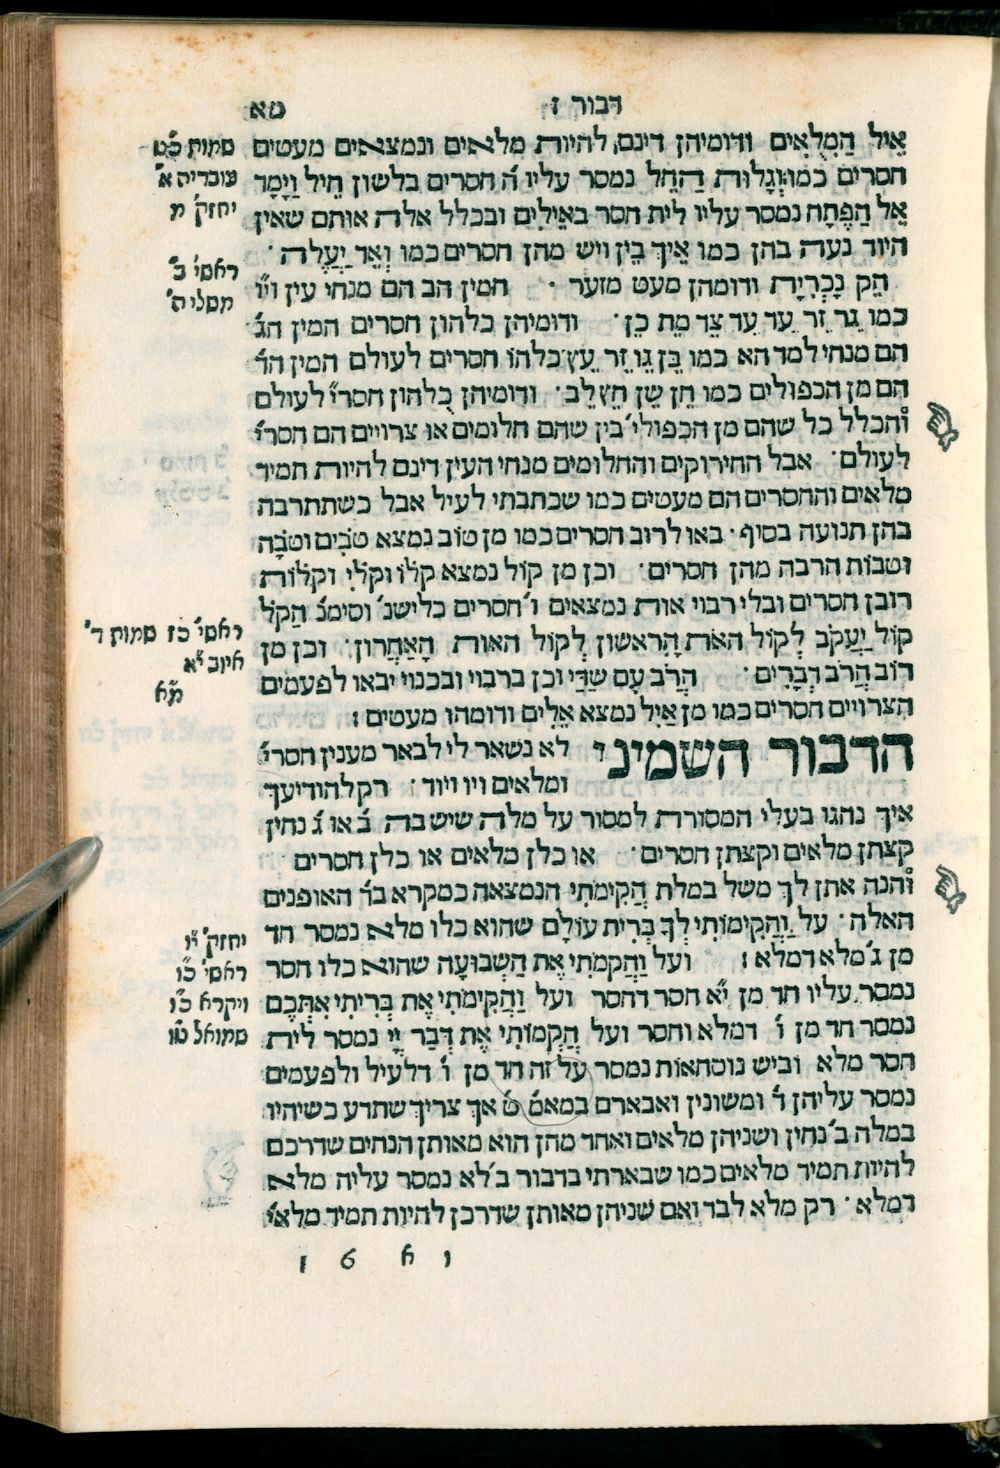 דבור ז
מא
אֵיל הַמִלֻאִים ודומיהן דינם להיות מלאים ונמצאים מעטים
חסרים כמו וְגָלוּת הַחֵל נמסר עליו ה' חסרים בלשון חֵיל וַיָמָד
אֵל הַפֶּתַח נמסר עליו לית חסר באֵילִים ובכלל אלה אותם שאין
היוד נעה בהן כמו אֵיךְ בֵין ויש מהן חסרים כמו וְאֵד יַעֲלֶה ·
הֵק נָכְרִיָת ודומהן מעט מזער · המין הב הם מנחי עין ויו
כמו גֵר זֵר עֵד עֵד צֵד מֵת כֵן · ודומיהן כלהון חסרים המין הג'
הם מנחי למד הא כמו בֵן גֵו זֵר עֵץ כלהו חסרים לעולם המין הד'
הם מן הכפולים כמו חֵן שֵן חֵץ לֵב · ודומיהן כלהון חסרי' לעולם
והכלל כל שהם מן הכפולי' בין שהם חלומים או צרויים הם חסרי'
לעולם · אבל החירוקים והחלומים מנחי העין דינם להיות תמיד
מלאים והחסרים הם מעטים כמו שכתבתי לעיל אבל כשתתרבה
בהן תנועה בסוף · באו לרוב חסרים כמו מן טוב נמצא טֹבִים וטֹבָה
וטבות הרבה מהן חסרים · וכן מן קול נמצא קֹלו וקֹלִי וקֹלות
רובן חסרים ובלי רבוי אות נמצאים ו' חסרים בלישנ' וסימנ' הַקֹל
קוֹל יַעֲקֹב לְקוֹל האֹת הָרִאשון לְקוֹל האות הָאַחֲרוֹן · וכן מן
רוב הֲרֹב דְבָרִים · הֲרֹב עִם שַדַי וכן ברבוי ובכנוי יבאו לפעמים
הצרויים חסרים כמו מן אַיִל נמצא אֵלִים ודומהו מעטים :
הדבור השמיני לא נשאר לי לבאר מענין חסרי'
ומלאים ויו ויוד · רק להודיעך
איך נהגו בעלי המסורת למסור על מלה שיש בה ב' או ג' נחין
קצתן מלאים וקצתן חסרים · או כלן מלאים או כלן חסרים
והנה אתן לך משל במלת הֲקִימֹתִי הנמצאה במקרא בד' האופנים
האלה · על וַהֲקִימוֹתִי לְךָ בְּרִית עוֹלָם שהוא כלו מלא נמסר חד
מן ג' מלא דמלא : ועל וַהֲקִמֹתִי אֶת הַשְבוּעָה שהוא כלו חסר
נמסר עליו חד מן י"א חסר דחסר ועל וַהֲקִימֹתִי אֶת בְּרִיתִי אִתְּכֶם
נמסר חד מן ו' דמלא וחסר ועל הֲקִמוֹתִי אֶת דְבַר יְיָ נמסר לית
חסר מלא וביש נוסחאות נמסר על זה חד מן ו' דלעיל ולפעמים
נמסר עליהן ד' ומשונין ואבארם במאמ' ט' אך צריך שתדע כשיהיו
במלה ב' נחין ושניהן מלאים ואחד מהן הוא מאותן הנחים שדרכם
להיות תמיד מלאים כמו שבארתי בדבור ב' לא נמסר עליה מלא
דמלא · רק מלא לבד ואם שניהן מאותן שדרכן להיות תמיד מלאי'
שמות כ"ט
עובדיה א'
יחזק' מ
ראשי' ב'
משלי ה'
ראשי' כז שמות ד'
איוב י"א
מ"א
יחזק' י"ו
ראשי' כ"ו
ויקרא כ"ו
שמואל ט"ו
ו א 6 ו